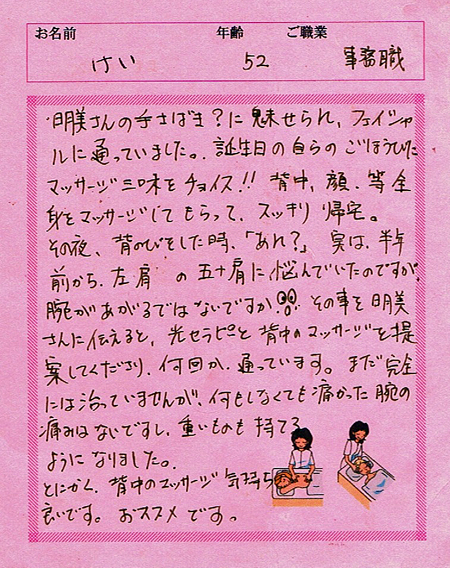 お名前 年齢 ご職業
けい 52 事務職
明美さんの手さばき?に魅せられ、フェイシャ
ルに通っていました。誕生日の自らのごほうびに
マッサージ三昧をチョイス!!背中、顔、等全
身をマッサージしてもらって、スッキリ帰宅。
その夜、背のびをした時、「あれ?」実は、半年
前から、左肩の五十肩に悩んでいたのですが、
腕があがるではないですか!! その事を明美
さんに伝えると、光セラピーと背中のマッサージを提
案してくださり、何回か通っています。まだ完全
には治っていませんが、何もしなくても痛かった腕の
痛みはないですし、重いものも持てる
ようになりました。
とにかく、背中のマッサージ気持ち
良いです。おススメです。